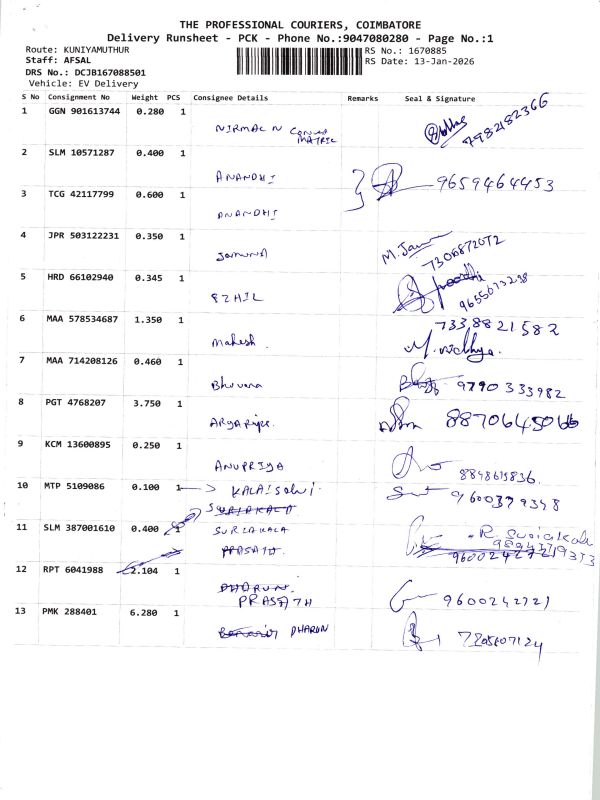 THE PROFESSIONAL COURIERS, COIMBATORE
Delivery Runsheet - PCK - Phone No.:9047080280 - Page No.:1
Route: KUNIYAMUTHUR RS No.: 1670885
Staff: AFSAL RS Date: 13-Jan-2026
DRS No.: DCJB167088501
Vehicle: EV Delivery
S No Consignment No Weight PCS Consignee Details Remarks Seal & Signature
1 GGN 901613744 0.280 1
NIRMAL N 7982182366
MATRIC
2 SLM 10571287 0.400 1
ANANDHI 9659464453
3 TCG 42117799 0.600 1
ANANDHI
4 JPR 503122231 0.350 1
Jamuna M. Jamu
7306872072
5 HRD 66102940 0.345 1
EZHIL
6 MAA 578534687 1.350 1 7338821582
Mahesh. M. vidhya.
7 MAA 714208126 0.460 1
Bhuvana 9790333982
8 PGT 4768207 3.750 1
8870645066
9 KCM 13600895 0.250 1
ANUPRIYA 8848615836.
10 MTP 5109086 0.100 1 KALAISELVI. 9600379348
SURIAKALA
11 SLM 387001610 0.400 1 SURIAKALA R Suriakala
PRASATH. 9600242721
12 RPT 6041988 2.104 1
DHARUN.
PRASATH 9600242721
13 PMK 288401 6.280 1
DHARUN 7205607124